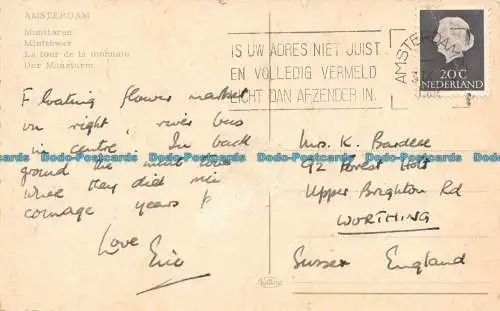 AMSTERDAM
Munttoren
Minttower
La tour de la monnaie
Der Münzturm
IS UW ADRES NIET JUIST
EN VOLLEDIG VERMELD
LICHT DAN AFZENDER IN.
AMSTERDAM
20 C
NEDERLAND
Floating flower market
on right, river bus
in centre. In back
ground the mint tower
where they did mi
coinage years
Love
Eric
Mrs. K. Bardese
92 Forest
Upper Brighton Rd
WORTHING
Sussex England
Postcards Postcards Postcards Postcards Postcards